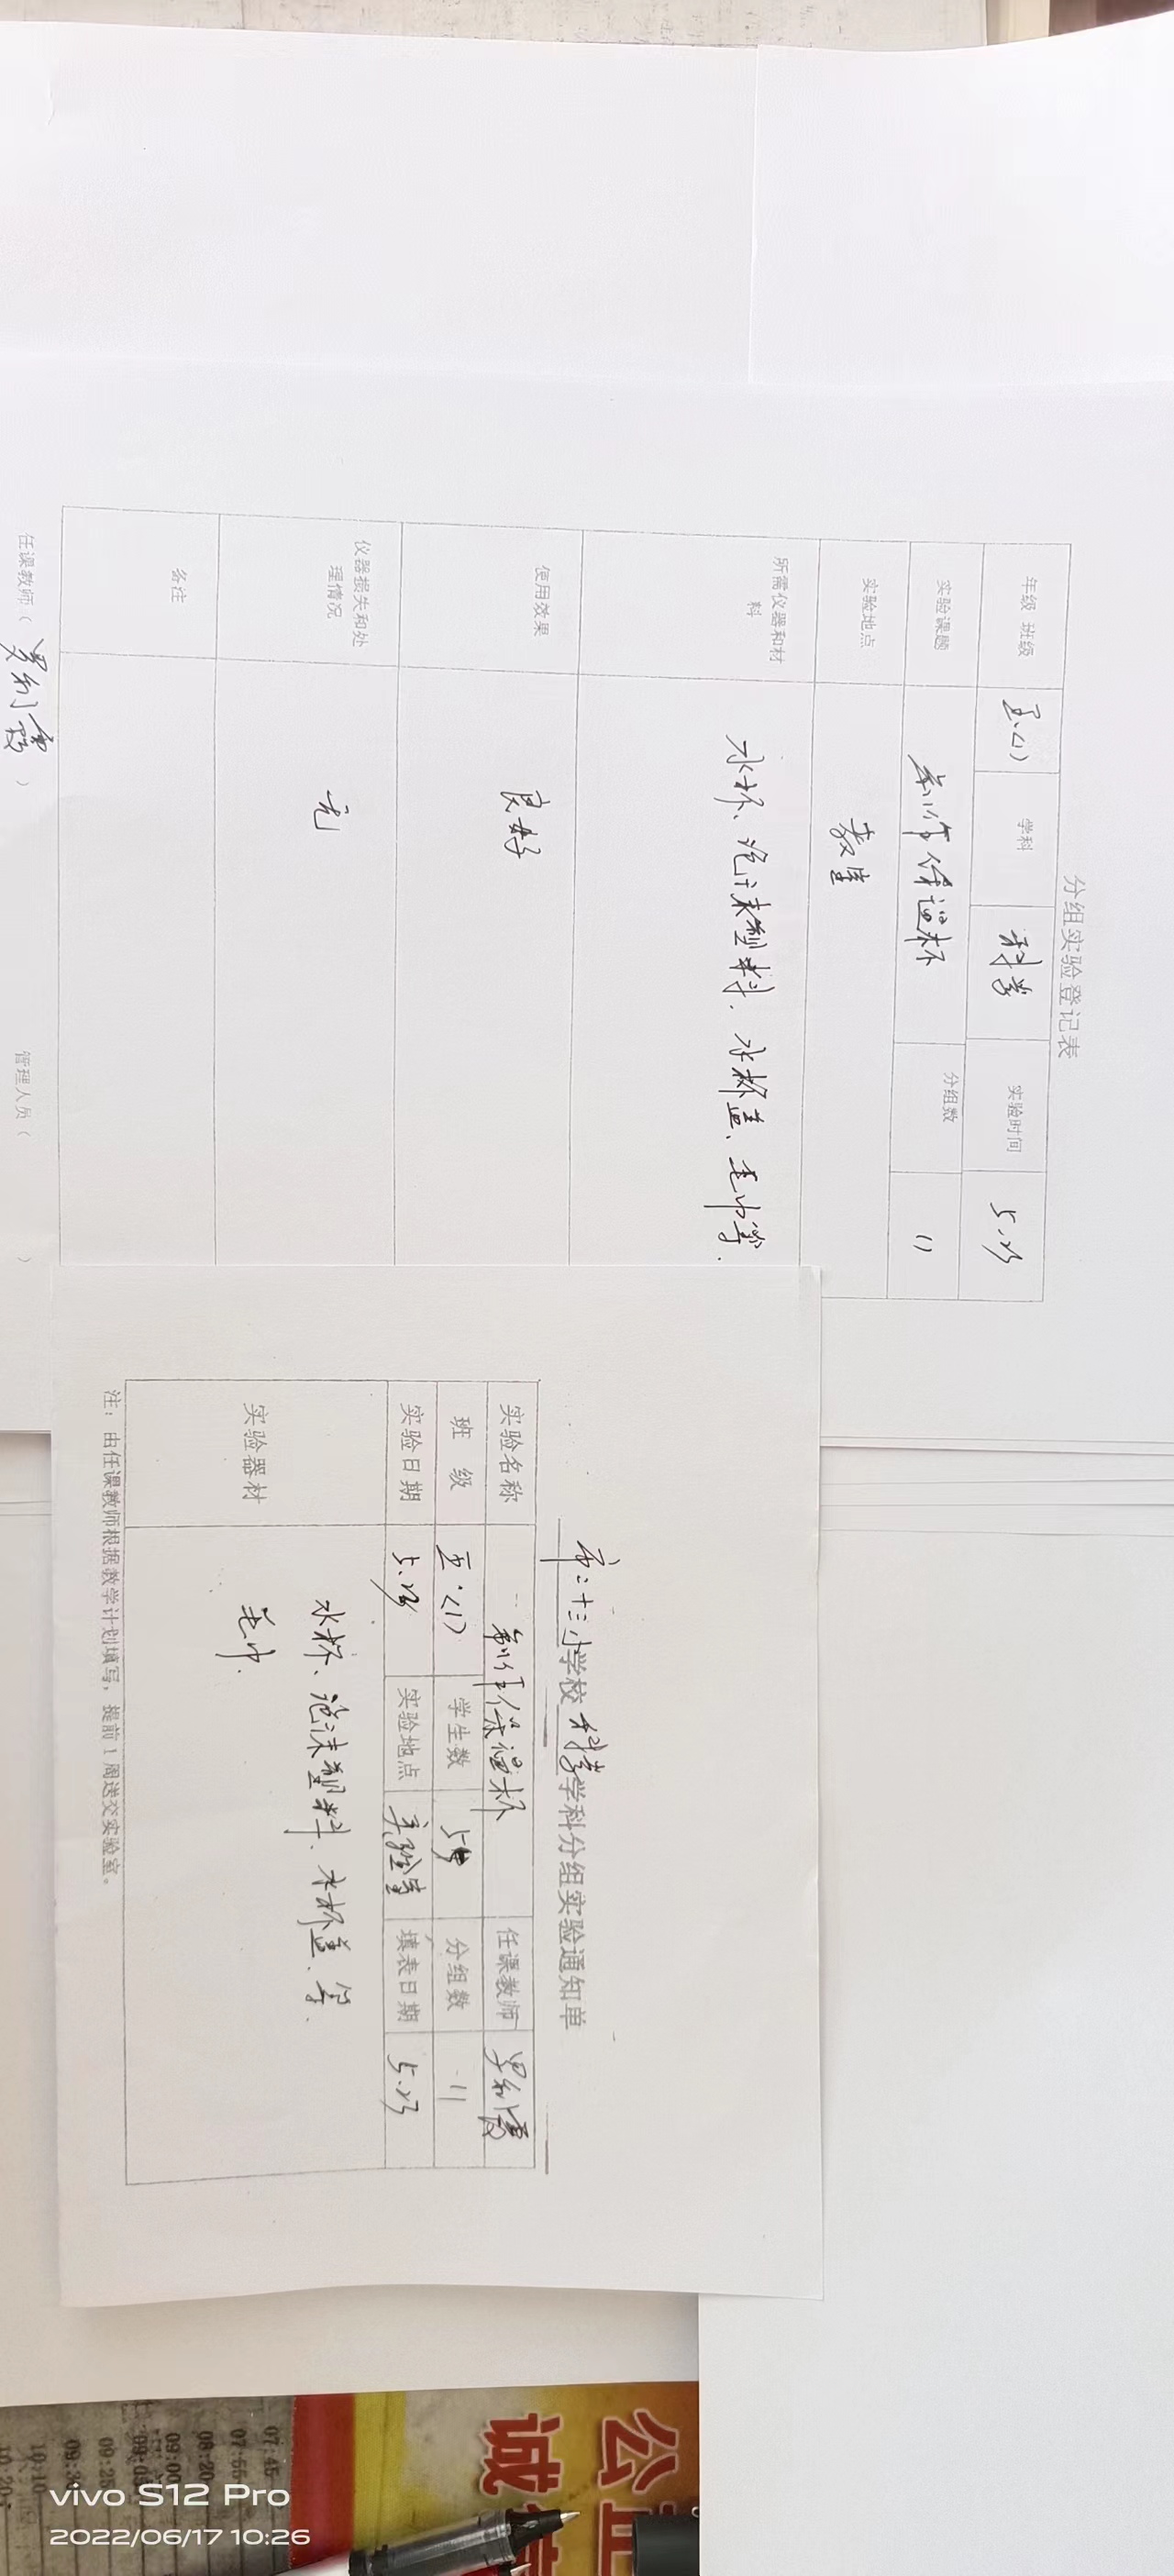 分组实验登记表
年级 班级 五.(1) 学科 科学 实验时间 5.23
实验课题 制作保温杯 分组数 11
实验地点 教室
所需仪器和材料 水杯、泡沫塑料、水杯盖、毛巾等.
使用效果 良好
仪器损失和处理情况 无
备注
任课教师( ) 管理人员( )
市二十三小学校科学学科分组实验通知单
实验名称 制作保温杯 任课教师
班 级 五.(1) 学生数 分组数 11
实验日期 实验地点 实验室 填表日期 5.23
实验器材 水杯、泡沫塑料、水杯盖、等.
毛巾.
注：由任课教师根据教学计划填写，提前1周送交实验室。
公正
诚
07:45
07:55
08:20
09:00
vivo S12 Pro
2022/06/17 10:26